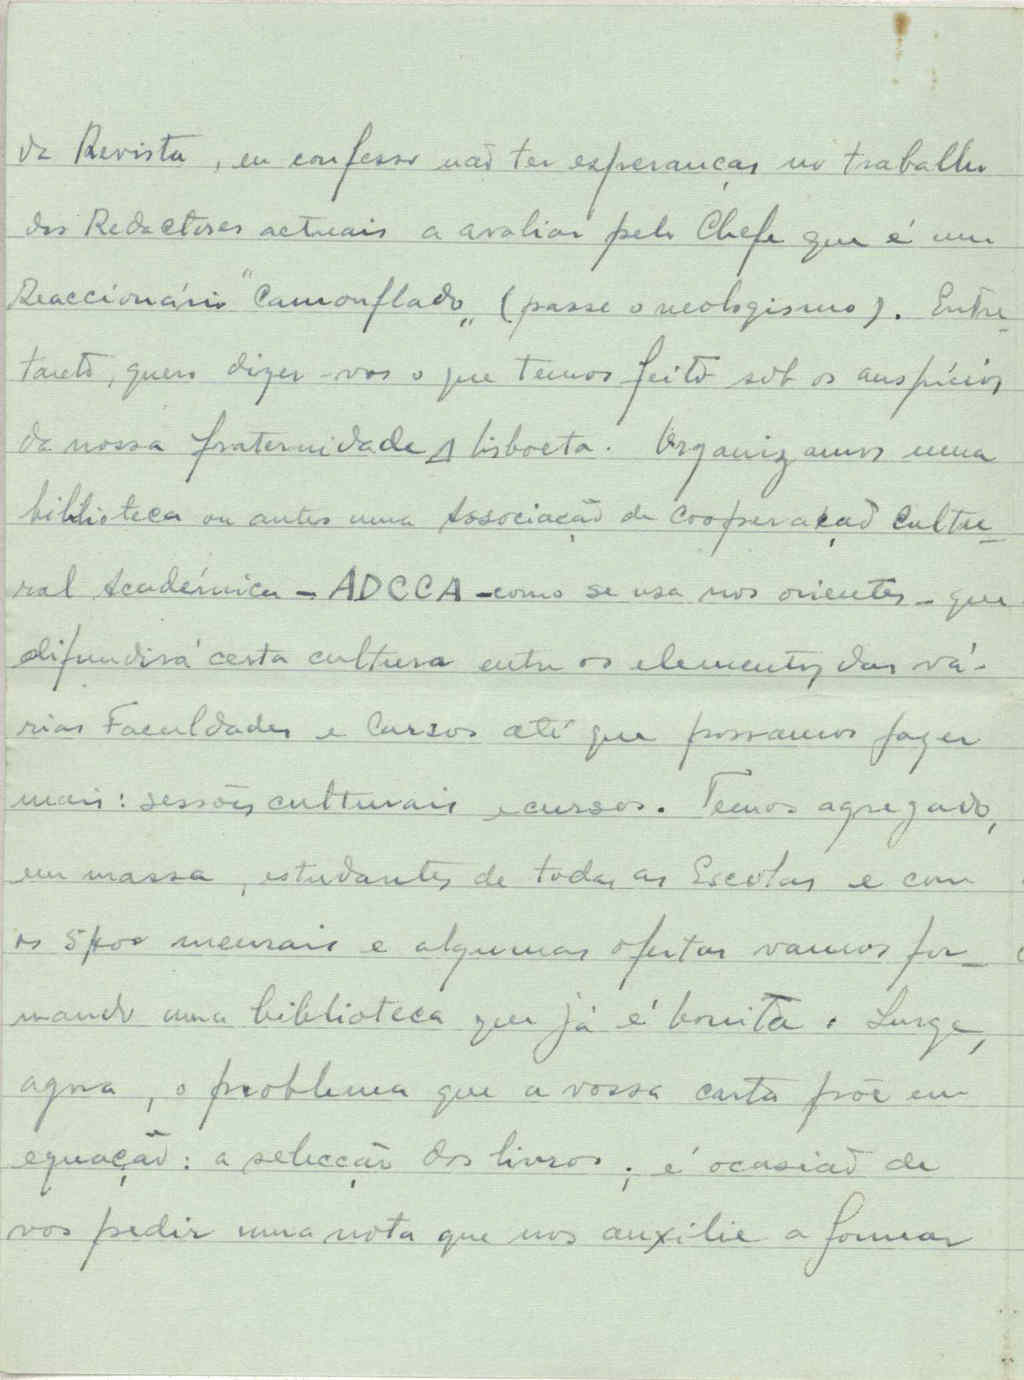 da Revista, eu confesso não ter esperanças no trabalho
dos Redactores actuais a avaliar pelo Chefe que é um
Reaccionário "Camouflado" (passe o neologismo). Entre-
tanto, quero dizer-vos o que temos feito sob os auspícios
da nossa fraternidade Lisboeta. Organizamos uma
biblioteca ou antes uma Associação de Cooperação Cultu-
ral Académica - ADCCA - como se usa nos orientes - que
difundirá certa cultura entre os elementos das vá-
rias Faculdades e Cursos até que possamos fazer
mais: sessões culturais e cursos. Temos agregado,
em massa, estudantes de todas as Escolas e com
os 5$00 mensais e algumas ofertas vamos for-
mando uma biblioteca que já é bonita. Surge,
agora, o problema que a vossa carta põe em
equação: a selecção dos livros; é ocasião de
vos pedir uma nota que nos auxilie a formar